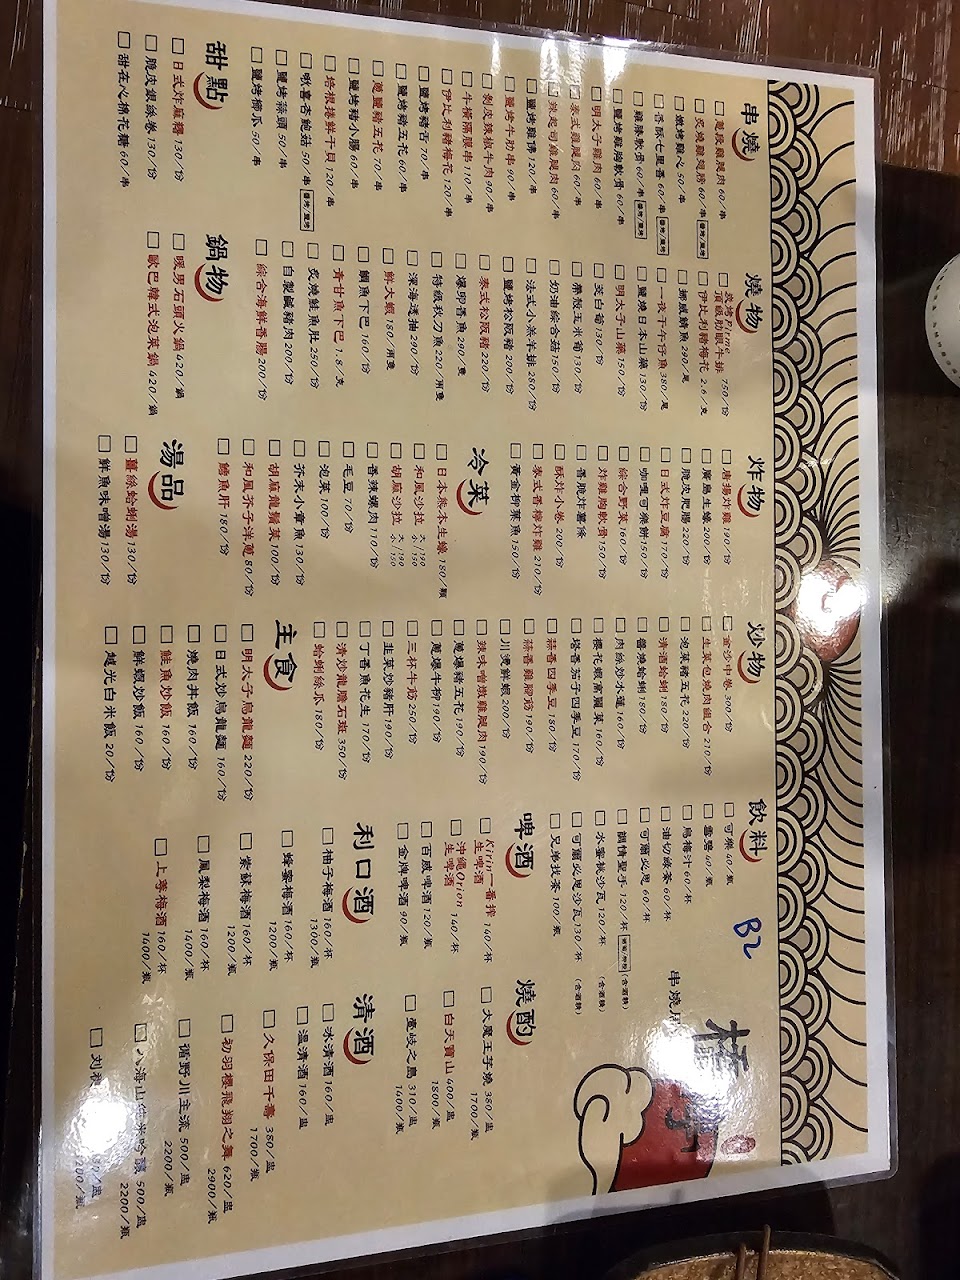 串燒
蔥段雞腿肉 60/串
炙燒雞翅膀 60/串 鹽烤/醬烤
嫩烤雞心 50/串
香酥七里香 60/串 鹽烤/醬烤
雞膝軟骨 60/串 鹽烤/醬烤
鹽烤雞胸軟骨 60/串
明太子雞肉 60/串
泰式雞腿肉 60/串
辣起司雞腿肉 60/串
鹽烤雞佛 120/串
鹽烤牛肋串 90/串
剝皮辣椒牛肉 90/串
牛橫隔膜串 110/串
伊比利豬梅花 120/串
鹽烤豬舌 70/串
鹽烤豬五花 60/串
蔥鹽豬五花 70/串
鹽烤豬小腸 60/串
培根捲鮮干貝 120/串
啾喜杏鮑菇 50/串
鹽烤蕗頭 50/串
鹽烤櫛瓜 50/串
甜點
日式炸麻糬 130/份
脆皮銀絲卷 130/份
甜在心棉花糖 60/串
燒物
炭烤Prime
頂級肋眼牛排 750/份
伊比利豬梅花 2.6/克
挪威鯖魚 290/尾
一夜干午仔魚 380/尾
鹽燒日本山藥 130/份
明太子山藥 150/份
茭白筍 130/份
帶殼玉米筍 130/份
奶油綜合菇 150/份
法式小羔羊排 280/份
鹽烤松阪豬 200/份
泰式松阪豬 220/份
爆卵香魚 290/隻
特級秋刀魚 220/兩隻
深海透抽 290/份
鮮大蝦 180/兩隻
鯛魚下巴 160/份
青甘魚下巴 1.8/克
炙燒鮭魚肚 250/份
自製鹹豬肉 200/份
綜合海鮮香腸 200/份
鍋物
暖男石頭火鍋 420/鍋
歐巴韓式泡菜鍋 420/鍋
炸物
唐揚炸雞 190/份
廣島生蠔 200/份
脆皮肥腸 220/份
日式炸豆腐 170/份
咖哩可樂餅 150/份
綜合野菜 160/份
炸雞胸軟骨 150/份
香脆炸薯條
酥炸小卷 200/份
泰式香檸炸雞 210/份
黃金柳葉魚 150/份
冷菜
日本熊本生蠔 180/顆
和風沙拉 大/190 小/150
胡麻沙拉 大/190 小/150
香辣螺肉 110/份
毛豆 70/份
泡菜 100/份
芥末小章魚 130/份
胡麻龍鬚菜 100/份
和風芥子洋蔥 80/份
鱈魚肝 180/份
湯品
薑絲蛤蜊湯 130/份
鮮魚味噌湯 130/份
炒物
金沙中卷 300/份
生菜包燒肉組合 210/份
泡菜豬五花 220/份
清酒蛤蜊 180/份
醬燒蛤蜊 180/份
肉絲炒水蓮 160/份
櫻花蝦高麗菜 160/份
塔香茄子四季豆 170/份
蒜香四季豆 180/份
蒜香雞腳筋 190/份
川燙鮮蝦 200/份
辣味噌燉雞腿肉 190/份
蔥爆豬五花 190/份
蔥爆牛柳 190/份
三杯牛筋 250/份
韭菜炒豬肝 190/份
丁香魚花生 170/份
清炒龍膽石斑 350/份
蛤蜊絲瓜 180/份
主食
明太子烏龍麵 220/份
日式炒烏龍麵 160/份
燒肉丼飯 160/份
鮭魚炒飯 160/份
鮮蝦炒飯 160/份
越光白米飯 20/份
飲料
可樂 40/瓶
雪碧 40/瓶
烏梅汁 60/杯
油切綠茶 60/杯
可爾必思 60/杯
調情聖手 120/杯 (含酒精)
水蜜桃沙瓦 120/杯 (含酒精)
可爾必思沙瓦 130/杯 (含酒精)
兄弟找茶 100/瓶
啤酒
Kirin一番搾
生啤酒 140/杯
沖繩Orion
生啤酒 140/杯
百威啤酒 120/瓶
金牌啤酒 90/瓶
利口酒
柚子梅酒 160/杯
1300/瓶
蜂蜜梅酒 160/杯
1200/瓶
紫蘇梅酒 160/杯
1200/瓶
鳳梨梅酒 160/杯
1400/瓶
上等梅酒 160/杯
1400/瓶
B2
串燒居
燒酌
大魔王芋燒 380/盅
1700/瓶
白天寶山 400/盅
1800/瓶
壹岐之島 310/盅
1400/瓶
清酒
冰清酒 160/盅
溫清酒 160/盅
久保田千壽 380/盅
1700/瓶
初羽櫻飛翔之舞 620/盅
2900/瓶
循野川主流 500/盅
2200/瓶
八海山 500/盅
2200/瓶